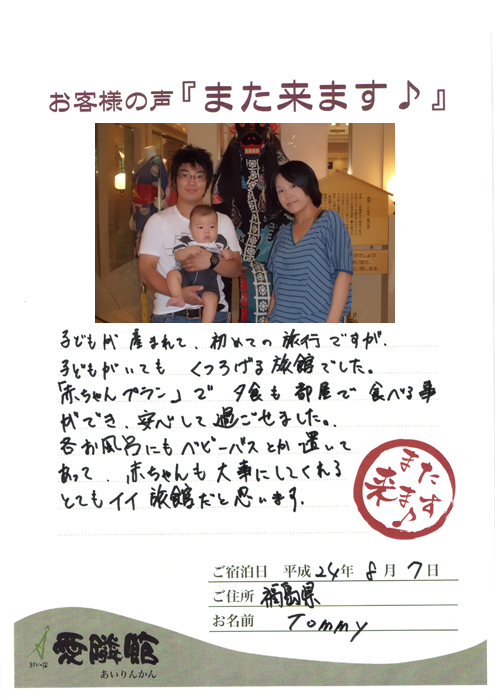 お客様の声『また来ます♪』
子どもが産まれて、初めての旅行ですが、
子どもがいても くつろげる旅館でした。
「赤ちゃんプラン」で 夕食も部屋で食べる事
ができ、安心して過ごせました。
各お風呂にもベビーバスとか置いて
あって、赤ちゃんも大事にしてくれる
とてもイイ旅館だと思います。
また
来ます♪
ご宿泊日 平成24年 8月 7日
ご住所 福島県
お名前 Tommy
愛隣館
あいりんかん